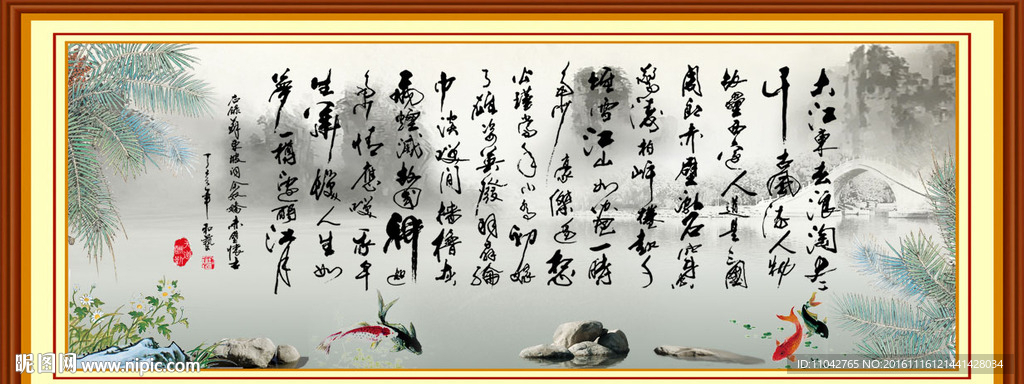 大江東去浪淘盡
千古風流人物
故壘西邊人道是三國
周郎赤壁亂石穿空
驚濤拍岸捲起千
堆雪江山如畫一時
多少豪傑遙想
公瑾當年小喬初嫁
了雄姿英發羽扇綸
巾談笑間檣櫓灰
飛煙滅故國神遊
多情應笑我早
生華髮人生如
夢一樽還酹江月
錄蘇東坡詞念奴嬌赤壁懷古
昵图网 www.nipic.com
ID:11042765 NO:20161116121441428034